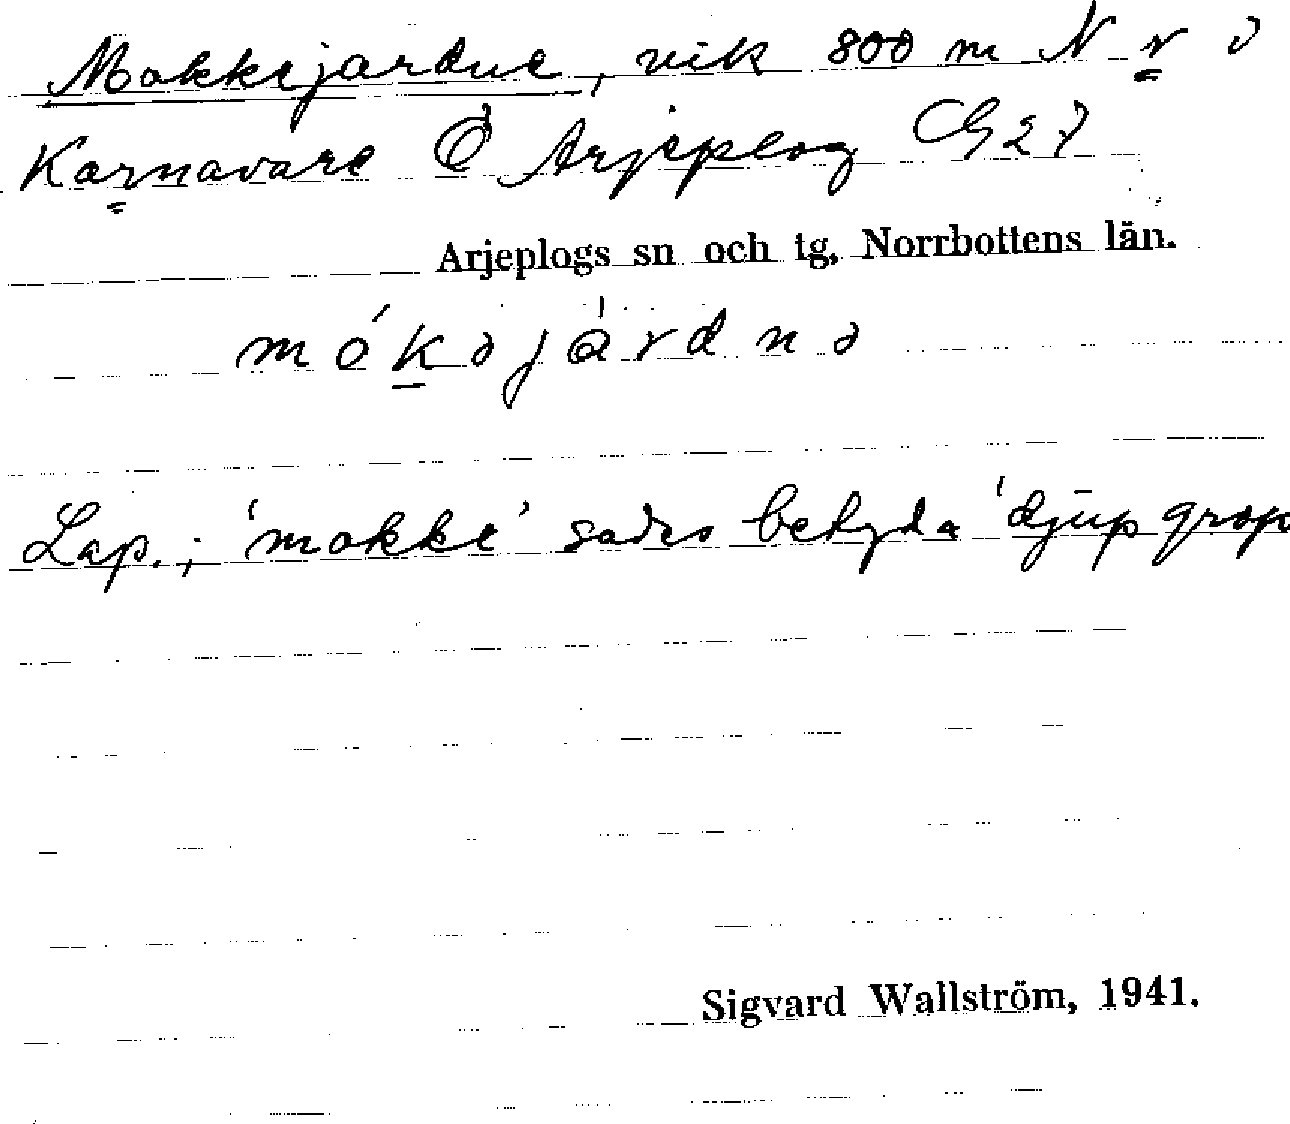 Mokkejardne, vik 800 m N v ö
Karnavare Ö Arjeplog G 27
Arjeplogs sn och tg, Norrbottens län.
mókəjàrdnə
Lap.; 'mokke' sades betyda 'djup grop
Sigvard Wallström, 1941.